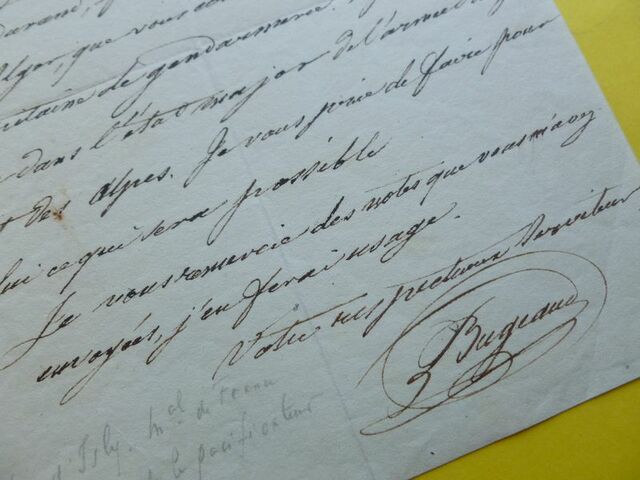 Alger, que vous
capitaine de gendarmerie.
dans l'état major de l'armée
des Alpes. Je vous prie de faire pour
lui ce qui sera possible
Je vous remercie des notes que vous m'avez
envoyées, j'en ferai usage.
Votre respectueux Serviteur
Bugeaud
d'Isly. mal de
le pacificateur